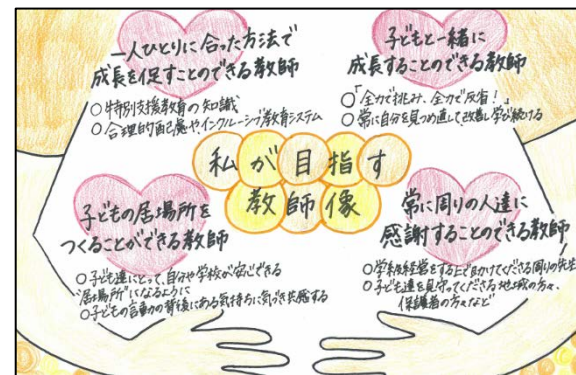 一人ひとりに合った方法で
成長を促すことのできる教師
○特別支援教育の知識
○合理的配慮やインクルーシブ教育システム
子どもと一緒に
成長することのできる教師
○「全力で挑み、全力で反省!」
○常に自分を見つめ直して改善し学び続ける
私が目指す
教師像
子どもの居場所を
つくることができる教師
○子ども達にとって、自分や学校が安心できる
"居場所"になるように
○子どもの言動の背景にある気持ちに気づき共感する
常に周りの人達に
感謝することのできる教師
○学級経営をする上で助けてくださる周りの先生
○子ども達を見守ってくださる地域の方々、
保護者の方々など